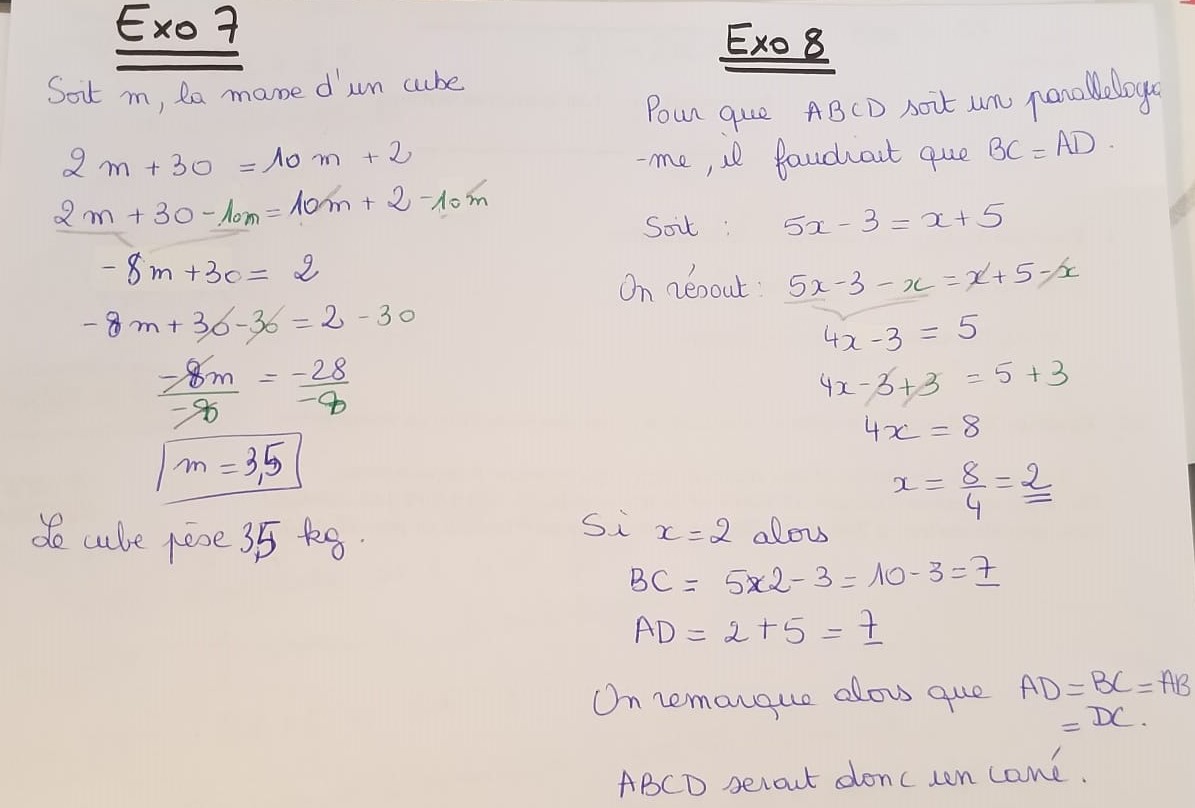 Exo 7
Soit m, la masse d'un cube
2m + 30 = 10m + 2
2m + 30 - 10m = 10m + 2 - 10m
-8m + 30 = 2
-8m + 30 - 30 = 2 - 30
-8m/-8 = -28/-8
m = 3,5
Le cube pèse 3,5 kg.
Exo 8
Pour que ABCD soit un parallélogra
-me, il faudrait que BC = AD.
Soit : 5x - 3 = x + 5
On résout : 5x - 3 - x = x + 5 - x
4x - 3 = 5
4x - 3 + 3 = 5 + 3
4x = 8
x = 8/4 = 2
Si x = 2 alors
BC = 5x2 - 3 = 10 - 3 = 7
AD = 2 + 5 = 7
On remarque alors que AD = BC = AB
= DC.
ABCD serait donc un carré.